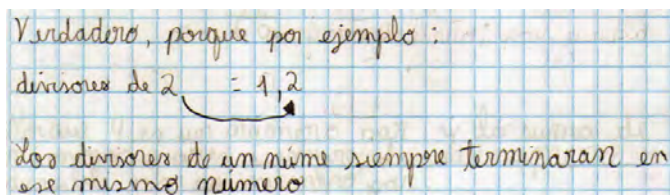 Verdadero, porque por ejemplo:
divisores de 2 = 1,2
Los divisores de un núme siempre terminaran en
ese mismo número